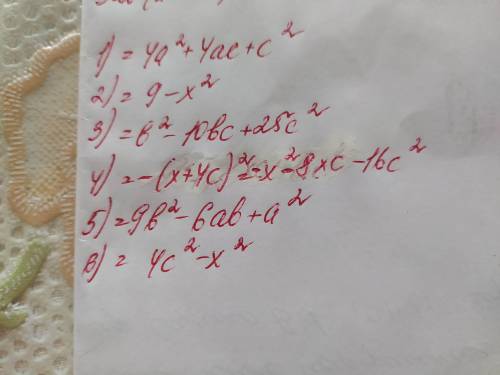 1) = 4a² + 4ac + c²
2) = 9 - x²
3) = b² - 10bc + 25c²
4) = -(x+4c)² = -x² - 8xc - 16c²
5) = 9b² - 6ab + a²
6) = 4c² - x²